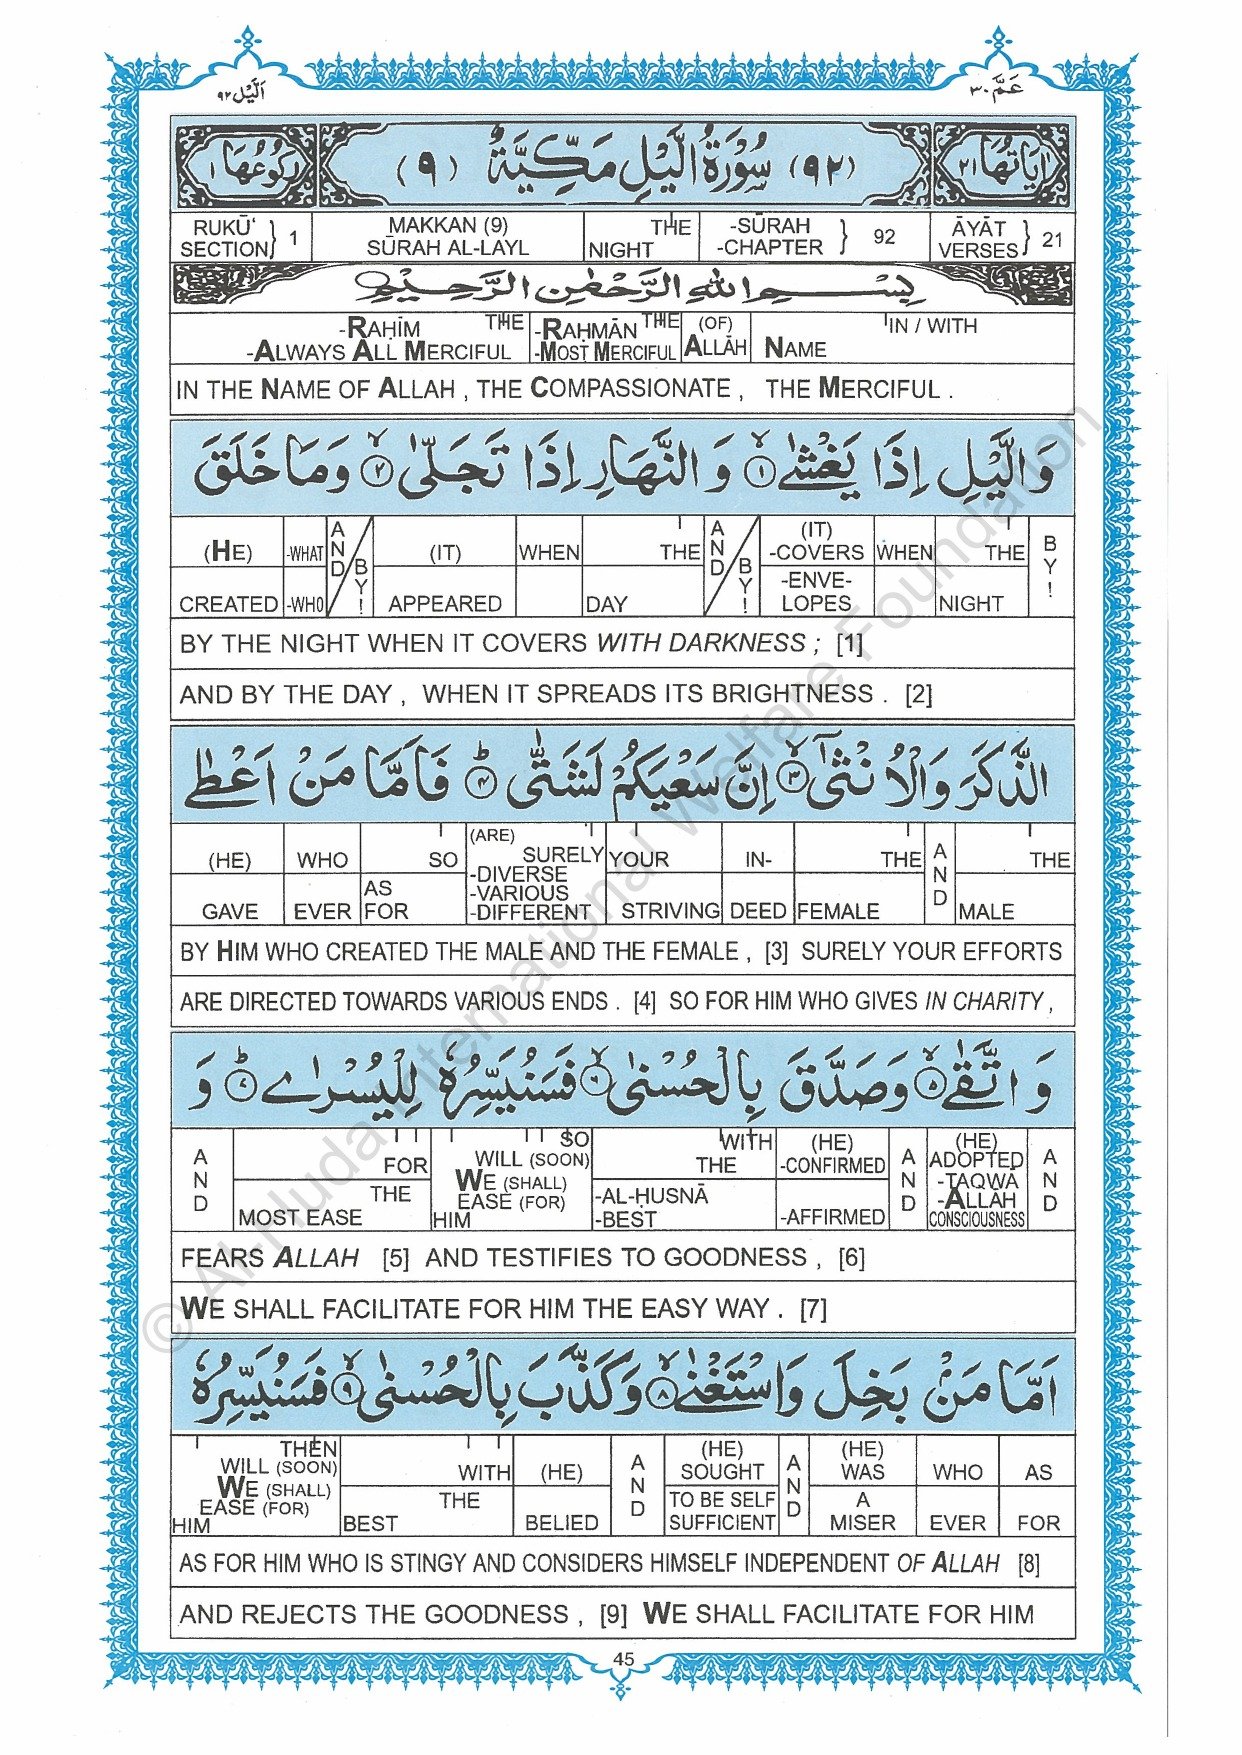 اَلَّيْل ٩٢ عَمَّ ٣٠
اٰيَاتُهَا ٢١ (٩٢) سُوْرَةُ الَّيْلِ مَكِّيَّةٌ (٩) رُكُوْعُهَا ١
RUKŪ‘ SECTION } 1 MAKKAN (9) SŪRAH AL-LAYL THE NIGHT -SŪRAH -CHAPTER } 92 ĀYĀT VERSES } 21
بِسْمِ اللهِ الرَّحْمٰنِ الرَّحِيْمِ
-RAḤĪM THE -RAḤMĀN THE (OF) IN / WITH
-ALWAYS ALL MERCIFUL -MOST MERCIFUL ALLĀH NAME
IN THE NAME OF ALLAH , THE COMPASSIONATE , THE MERCIFUL .
وَالَّيْلِ اِذَا يَغْشٰى ۙ١ وَالنَّهَارِ اِذَا تَجَلّٰى ۙ٢ وَمَا خَلَقَ
(HE) -WHAT AND (IT) WHEN THE AND (IT) -COVERS WHEN THE BY!
CREATED -WHO BY! APPEARED DAY BY! -ENVE-LOPES NIGHT
BY THE NIGHT WHEN IT COVERS WITH DARKNESS ; [1]
AND BY THE DAY , WHEN IT SPREADS ITS BRIGHTNESS . [2]
الذَّكَرَ وَالْاُنْثٰىٓ ۙ٣ اِنَّ سَعْيَكُمْ لَشَتّٰى ؕ٤ فَاَمَّا مَنْ اَعْطٰى
(HE) WHO SO (ARE) SURELY YOUR IN- THE AND THE
GAVE EVER AS FOR -DIVERSE -VARIOUS -DIFFERENT STRIVING DEED FEMALE MALE
BY HIM WHO CREATED THE MALE AND THE FEMALE , [3] SURELY YOUR EFFORTS
ARE DIRECTED TOWARDS VARIOUS ENDS . [4] SO FOR HIM WHO GIVES IN CHARITY ,
وَاتَّقٰى ۙ٥ وَصَدَّقَ بِالْحُسْنٰى ۙ٦ فَسَنُيَسِّرُهٗ لِلْيُسْرٰى ؕ٧ وَ
AND FOR SO WILL (SOON) WE (SHALL) WITH THE (HE) -CONFIRMED AND (HE) ADOPTED -TAQWA AND
THE MOST EASE EASE (FOR) HIM -AL-ḤUSNĀ -BEST -AFFIRMED -ALLĀH CONSCIOUSNESS
FEARS ALLAH [5] AND TESTIFIES TO GOODNESS , [6]
WE SHALL FACILITATE FOR HIM THE EASY WAY . [7]
اَمَّا مَنْۢ بَخِلَ وَاسْتَغْنٰى ۙ٨ وَكَذَّبَ بِالْحُسْنٰى ۙ٩ فَسَنُيَسِّرُهٗ
THEN WILL (SOON) WE (SHALL) WITH (HE) AND (HE) SOUGHT AND (HE) WAS WHO AS
EASE (FOR) HIM THE BEST BELIED TO BE SELF SUFFICIENT A MISER EVER FOR
AS FOR HIM WHO IS STINGY AND CONSIDERS HIMSELF INDEPENDENT OF ALLAH [8]
AND REJECTS THE GOODNESS , [9] WE SHALL FACILITATE FOR HIM
45
© Al-Huda International Welfare Foundation